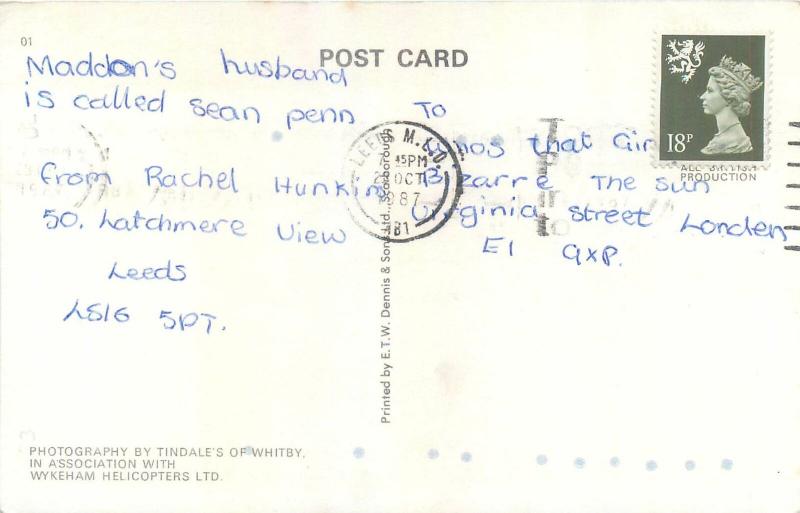 01
POST CARD
Maddon's husband
is called sean penn
from Rachel Hunkin
50. Latchmere View
Leeds
LS16 5PT.
To
Whos that Gir
Bizarre The sun
Virginia street London
E1 9XP.
18P
PRODUCTION
LEEDS M.L.O.
45PM
OCT
1987
Printed by E.T.W. Dennis & Sons Ltd., Scarborough
PHOTOGRAPHY BY TINDALE'S OF WHITBY,
IN ASSOCIATION WITH
WYKEHAM HELICOPTERS LTD.